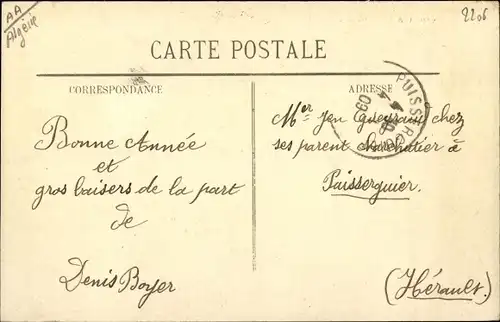 AA
Algérie
2206
CARTE POSTALE
CORRESPONDANCE
ADRESSE
PUISSERGUIER
Bonne Année
et
gros baisers de la part
de
Denis Boyer
Mer Jen chez
ses parent charcutier à
Puisserguier.
(Hérault.)